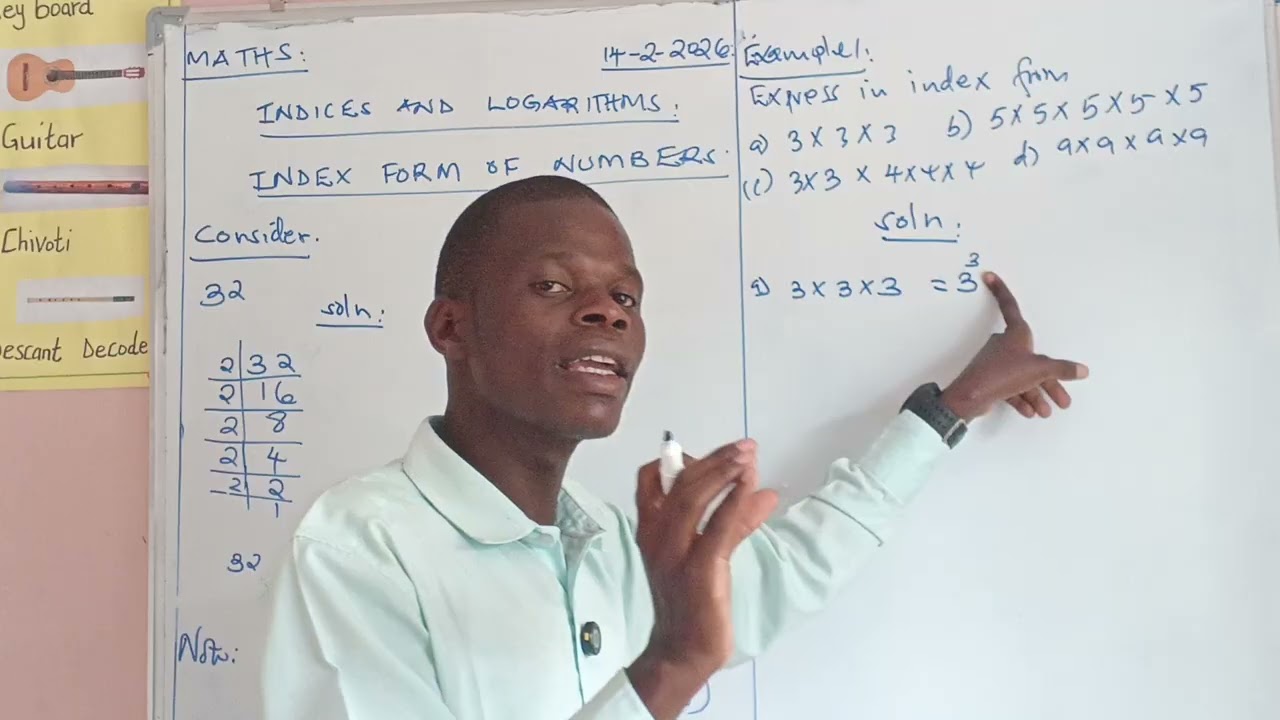 ey board
Guitar
Chivoti
escant Decode
MATHS:
14-2-2026
INDICES AND LOGARITHMS:
INDEX FORM OF NUMBERS.
Consider.
32
soln:
2 32
2 16
2 8
2 4
2 2
1
32
Note:
Example 1:
Express in index from
a) 3 x 3 x 3 b) 5 x 5 x 5 x 5 x 5
(c) 3x3 x 4x4x4 d) 9x9 x 9 x 9
soln:
a) 3 x 3 x 3 = 3³